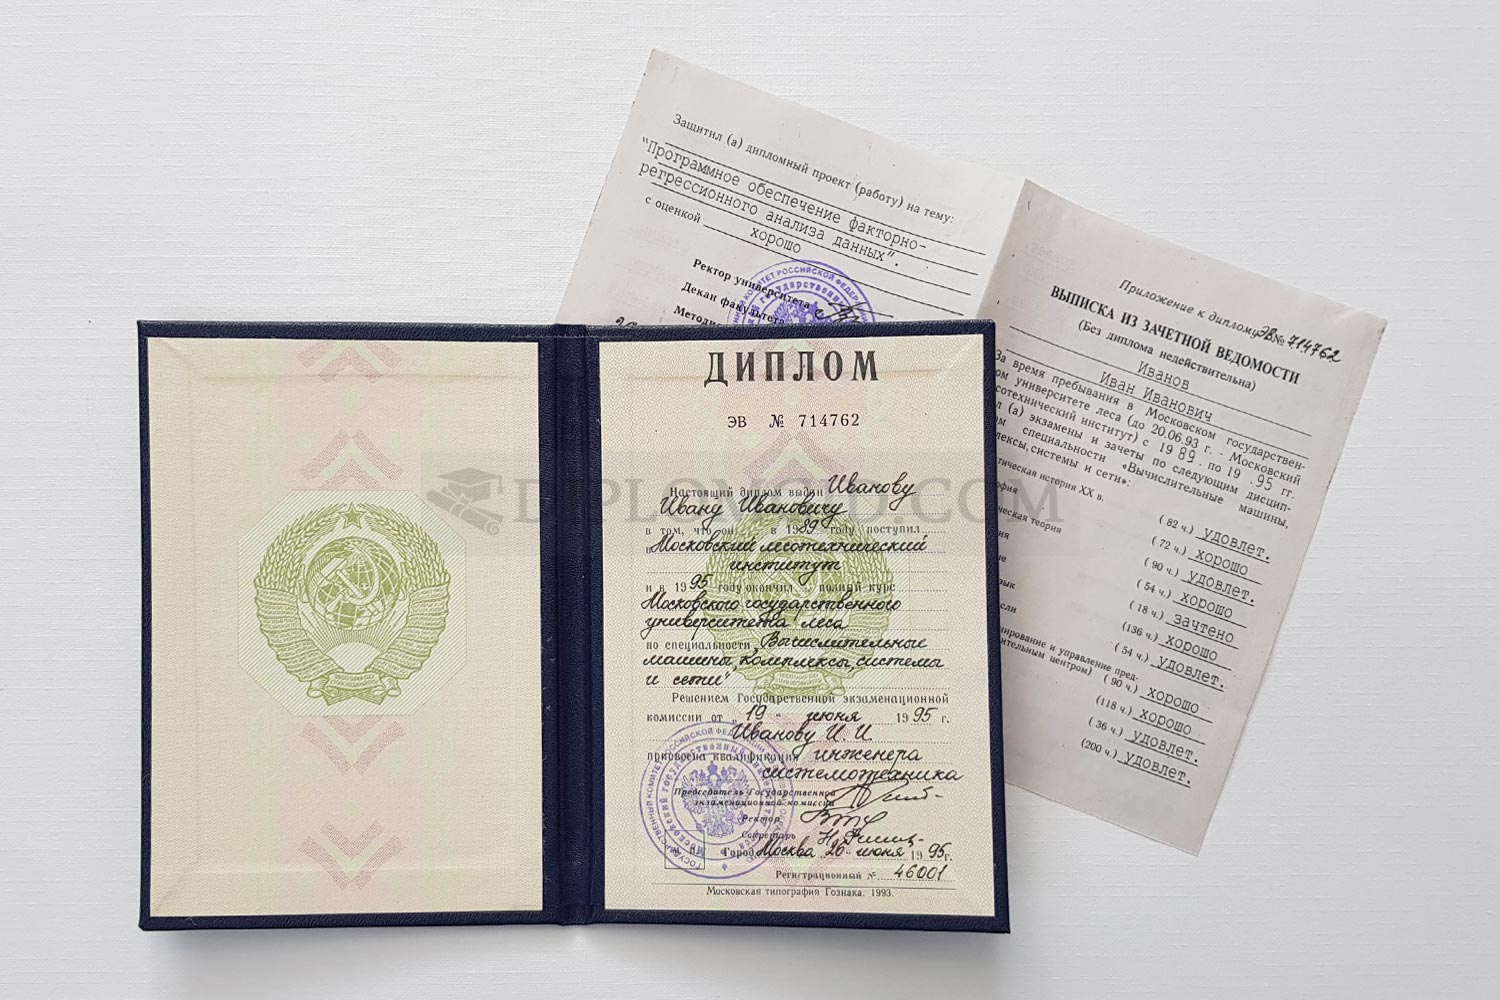 Защитил (а) дипломный проект (работу) на тему:
"Программное обеспечение факторно-
регрессионного анализа данных".
с оценкой хорошо
Ректор университета
Декан факультета
Приложение к диплому ЭВ № 714762
ВЫПИСКА ИЗ ЗАЧЕТНОЙ ВЕДОМОСТИ
(Без диплома недействительна)
Иванов
Иван Иванович
За время пребывания в Московском государствен-
ом университете леса (до 20.06.93 г. - Московский
сотехнический институт) с 1989 . по 1995 гг.
л (а) экзамены и зачеты по следующим дисцип-
ом специальности «Вычислительные машины,
лексы, системы и сети»:
тическая история XX в. (82 ч.) удовлет.
офия (72 ч.) хорошо
ческая теория (90 ч.) удовлет.
ия (54 ч.) хорошо
ие (18 ч.) зачтено
зык (136 ч.) хорошо
сли (54 ч.) удовлет.
нирование и управление пред-
ительным центром) (90 ч.) хорошо
(118 ч.) хорошо
(36 ч.) удовлет.
(200 ч.) удовлет.
ДИПЛОМ
ЭВ № 714762
Настоящий диплом выдан Иванову
Ивану Ивановичу
в том, что он в 1989 году поступил
в Московский лесотехнический
институт
и в 1995 году окончил полный курс
Московского государственного
университета леса
по специальности „Вычислительные
машины, комплексы, системы
и сети"
Решением Государственной экзаменационной
комиссии от „19" июня 1995 г.
Иванову И. И.
присвоена квалификация инженера
системотехника
Председатель Государственной
экзаменационной комиссии
Ректор
Секретарь
Город Москва 26 июня 1995г.
Регистрационный № 46001
Московская типография Гознака. 1993.